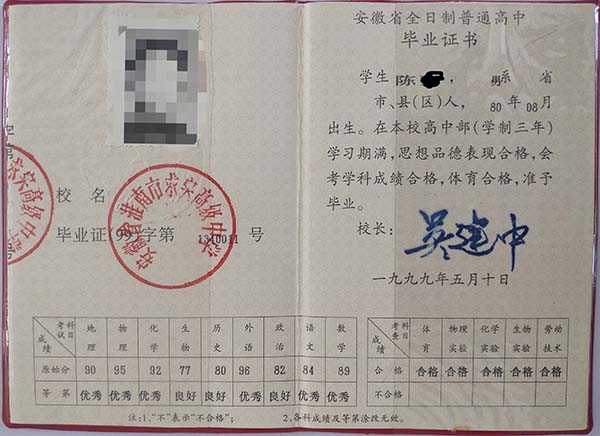 校名
毕业证(99)字第1340011号
安徽省淮南市蔡家岗高级中学
考试科目 成绩 地理 物理 化学 生物 历史 外语 政治 语文 数学
原始分 90 95 92 77 80 96 82 84 89
等第 优秀 优秀 优秀 良好 良好 优秀 良好 优秀 优秀
注:1、“不”表示“不合格”; 2、各科成绩及等第涂改无效。
安徽省全日制普通高中
毕业证书
学生 陈 , 男 系 省
市、县(区)人, 80年08月
出生。在本校高中部(学制三年)
学习期满,思想品德表现合格,会
考学科成绩合格,体育合格,准予
毕业。
校长: 吴建中
一九九九年五月十日
考查科目 成绩 体育 物理实验 化学实验 生物实验 劳动技术
合格 合格 合格 合格 合格 合格
不合格